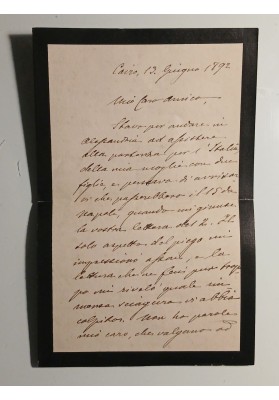 Cairo, 13. Giugno 1892
Mio Caro Amico,
Stavo per andare in
Alessandria ad assistere
alla partenza per l'Italia
della mia moglie con due
figlie, e pensava di avvisar
vi che passerebbero il 18 da
Napoli, quando mi giunse
la vostra lettera del 2. Il
solo aspetto del piego mi
impressionò assai, e la
lettura che ne feci pur trop
po mi rivelò quale im
mensa sciagura vi abbia
colpito. Non ho parole
mio caro, che valgano ad